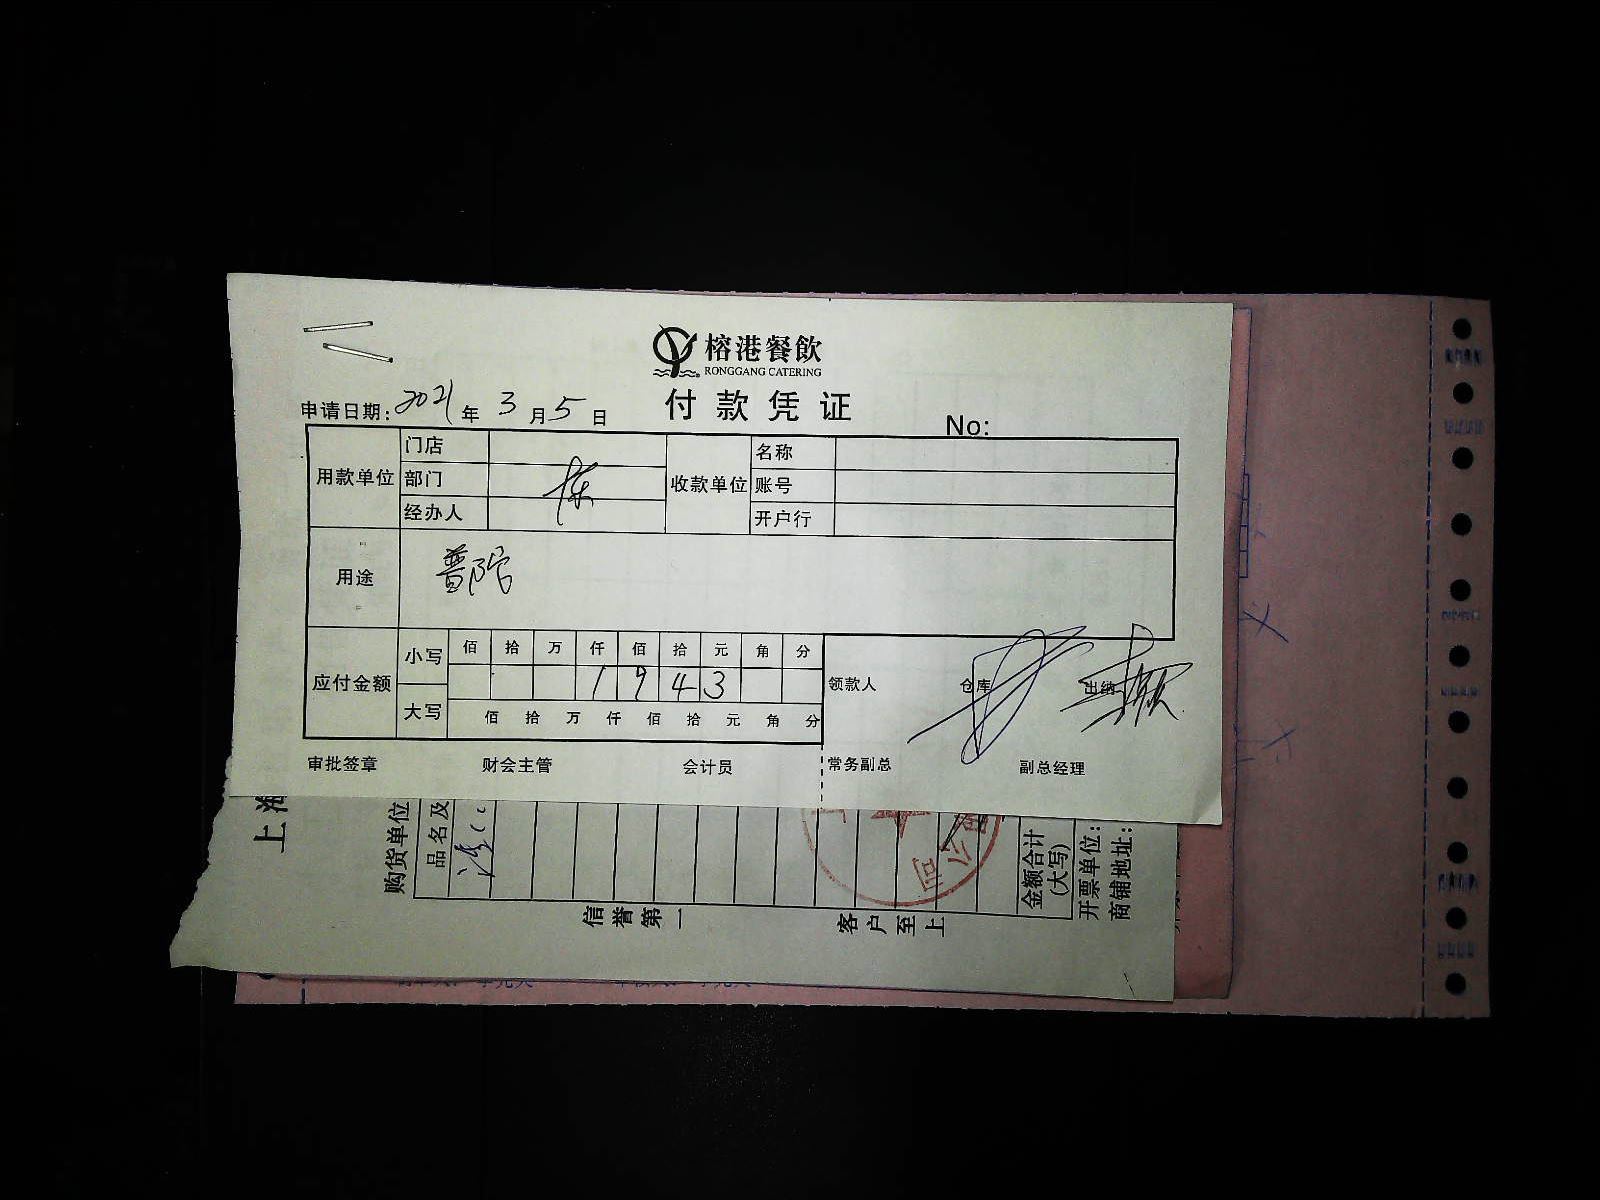 榕港餐飲
RONGGANG CATERING
付款凭证
申请日期: 2021 年 3 月 5 日
No:
用款单位 门店 收款单位 名称
部门 陈 账号
经办人 开户行
用途 普陀
应付金额 小写 佰 拾 万 仟 佰 拾 元 角 分
1 9 4 3
大写 佰 拾 万 仟 佰 拾 元 角 分
领款人 仓库 出纳
审批签章 财会主管 会计员 常务副总 副总经理
上海
购货单位
品名及
金额合计
(大写)
开票单位:
商铺地址:
信誉第一 客户至上
公司